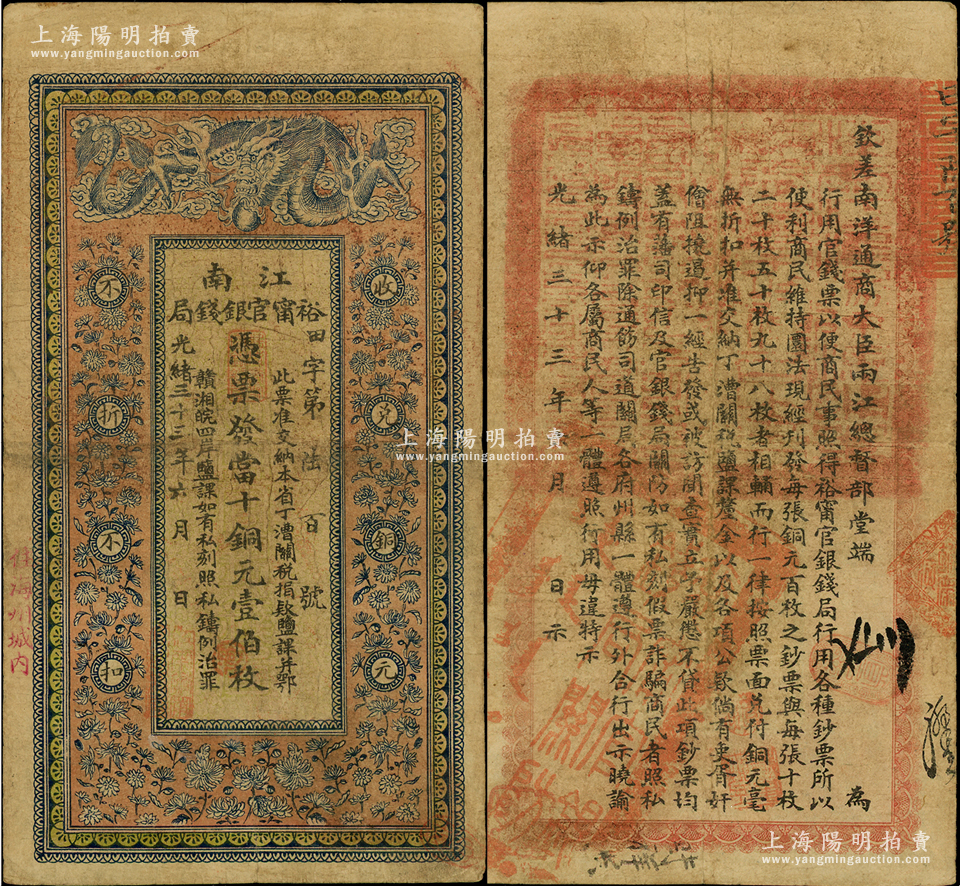 上海陽明拍賣
www.yangmingauction.com
江南
裕甯官銀錢局
田字第 百號
此票准交納本省丁漕關稅捐釐鹽課并鄂
憑票發當十銅元壹伯枚
贛湘皖四岸鹽課如有私刻照私鑄例治罪
光緒三十三年六月 日
收兌銅元
不折不扣
州城內
上海陽明拍賣
www.yangmingauction.com
上海陽明拍賣
www.yangmingauction.com
欽差南洋通商大臣兩江總督部堂端 為
行用官錢票以便商民事照得裕甯官銀錢局行用各種鈔票所以
便利商民維持圜法現經刊發每張銅元百枚之鈔票與每張十枚
二十枚五十枚九十八枚者相輔而行一律按照票面兌付銅元毫
無折扣并准交納丁漕關稅鹽課釐金以及各項公欵倘有吏胥奸
儈阻撓遏抑一經告發或被訪聞查實立予嚴懲不貸此項鈔票均
蓋有藩司印信及官銀錢局關防如有私刻假票詐騙商民者照私
鑄例治罪除通飭司道關局各府州縣一體遵行外合行出示曉諭
為此示仰各屬商民人等一體遵照行用毋違特示
光緒三十三年 月 日示
上海陽明拍賣
www.yangmingauction.com